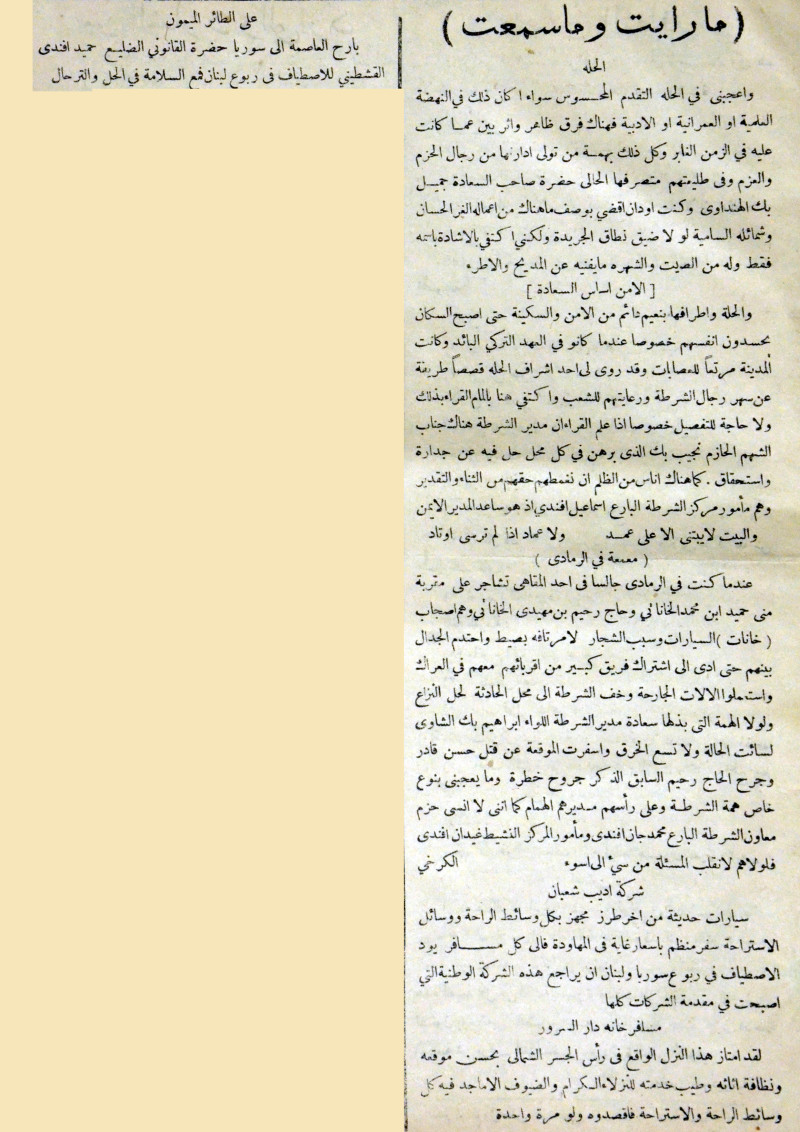 ( مارايت وماسمعت )
الحله
واعجبنى في الحله التقدم المحسوس سواء اكان ذلك في النهضة
العلمية او العمرانية او الادبية فهناك فرق ظاهر واثر بين عما كانت
عليه في الزمن الغابر وكل ذلك بهمة من تولى ادارتها من رجال الحزم
والعزم وفى طليعتهم متصرفها الحالى حضرة صاحب السعادة جميل
بك الهنداوى وكنت اودان اقضي بوصف ماهناك من اعماله الغر الحسان
وشمائله السامية لو لا ضيق نطاق الجريدة ولكني اكتفي بالاشادة باسمه
فقط وله من الصيت والشهره مايغنيه عن المديح والاطرء
[ الامن اساس السعادة ]
والحلة واطرافها بنعيم دائم من الامن والسكينة حتى اصبح السكان
يحسدون انفسهم خصوصا عندما كانو في العهد التركي البائد وكانت
المدينة مرتعاً للعصابات وقد روى لى احد اشراف الحله قصصاً طريفة
عن سهر رجال الشرطة ورعايتهم للشعب واكتفي هنا بالمام القراء بذلك
ولا حاجة للتفصيل خصوصا اذا علم القراء ان مدير الشرطة هناك جناب
الشهم الحازم نجيب بك الذى برهن في كل محل حل فيه عن جدارة
واستحقاق . كما هناك اناس من الظلم ان نغمطهم حقهم من الثناء والتقدير
وهم مأمور مركز الشرطة البارع اسماعيل افندي اذ هو ساعد المدير الايمن
والبيت لا يبتنى الا على عمد ولا عماد اذا لم ترسى اوتاد
( معمعة في الرمادى )
عندما كنت في الرمادى جالسا فى احد المقاهى تشاجر على مقربة
منى حميد ابن محمد الخاناتي وحاج رحيم بن مهيدى الخاناتي وهم اصحاب
( خانات ) السيارات وسبب الشجار لامر تافه بصيط واحتدم الجدال
بينهم حتى ادى الى اشتراك فريق كبير من اقربائهم معهم في العراك
واستعملوا الالات الجارحة وخف الشرطة الى محل الحادثة لحل النزاع
ولولا الهمة التى بذلها سعادة مدير الشرطة اللواء ابراهيم بك الشاوى
لسائت الحالة ولا تسع الخرق واسفرت الموقعة عن قتل حسن قادر
وجرح الحاج رحيم السابق الذكر جروح خطرة وما يعجبنى بنوع
خاص همة الشرطة وعلى رأسهم مديرهم الهمام كما اننى لا انسى حزم
معاون الشرطة البارع محمد جان افندى ومأمور المركز النشيط غيدان افندى
فلولاهم لانقلب المسئلة من سيء الى اسوء الكرخي
شركة اديب شعبان
سيارات حديثة من اخر طرز مجهز بكل وسائط الراحة ووسائل
الاستراحة سفر منظم باسعار غاية فى المهاودة فالى كل مسافر يود
الاصطياف في ربوع سوريا ولبنان ان يراجع هذه الشركة الوطنية التي
اصبحت في مقدمة الشركات كلها
مسافرخانه دار السرور
لقد امتاز هذا النزل الواقع فى رأس الجسر الشمالى بحسن موقعه
ونظافة اثاثه وطيب خدمته للنزلاء الكرام والضيوف الاماجد فيه كل
وسائط الراحة والاستراحة فاقصدوه ولو مرة واحدة
على الطائر الميمون
بارح العاصمة الى سوريا حضرة القانوني الضليع حميد افندى
القشطيني للاصطياف فى ربوع لبنان فمع السلامة في الحل والترحال